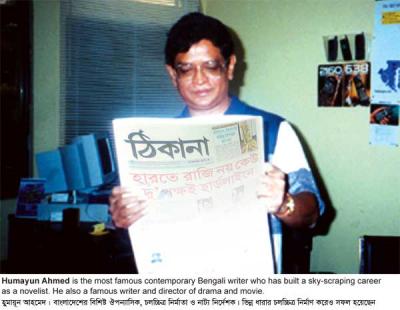 360 638
ঠিকানা
হারতে রাজি নয় কেউ
দু'পক্ষই হার্ডলাইনে
Humayun Ahmed is the most famous contemporary Bengali writer who has built a sky-scraping career
as a novelist. He also a famous writer and director of drama and movie.
হুমায়ূন আহমেদ। বাংলাদেশের বিশিষ্ট ঔপন্যাসিক, চলচ্চিত্র নির্মাতা ও নাট্য নির্দেশক। ভিন্ন ধারার চলচ্চিত্র নির্মাণ করেও সফল হয়েছেন